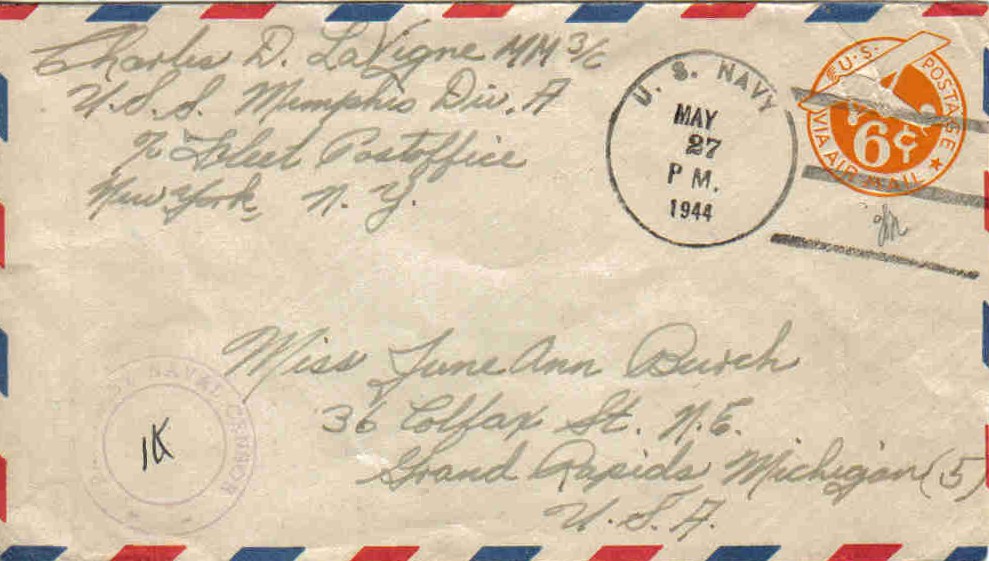 Charles D. LaVigne MM 3/c
U.S.S. Memphis Div. A
℅ Fleet Postoffice
New York, N. Y.
U. S. NAVY
MAY
27
P M.
1944
U.S. POSTAGE
VIA AIR MAIL
6¢
Miss June Ann Burch
36 Colfax St. N.E.
Grand Rapids Michigan (5)
U.S.A.
NAVAL CENSOR